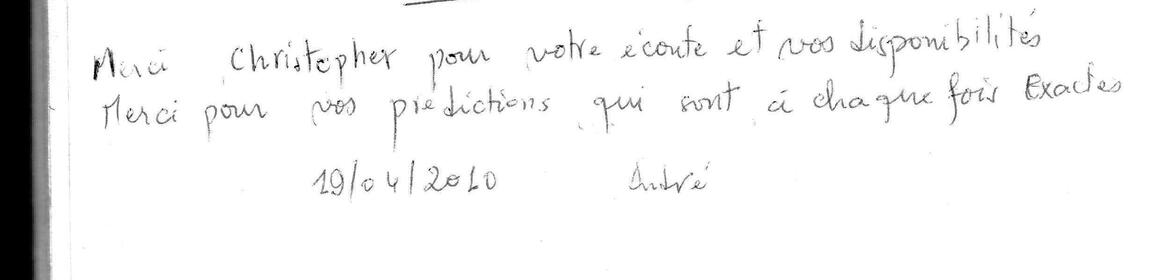 Merci Christopher pour votre écoute et vos disponibilités
Merci pour vos prédictions qui sont à chaque fois Exactes
19/04/2010 André